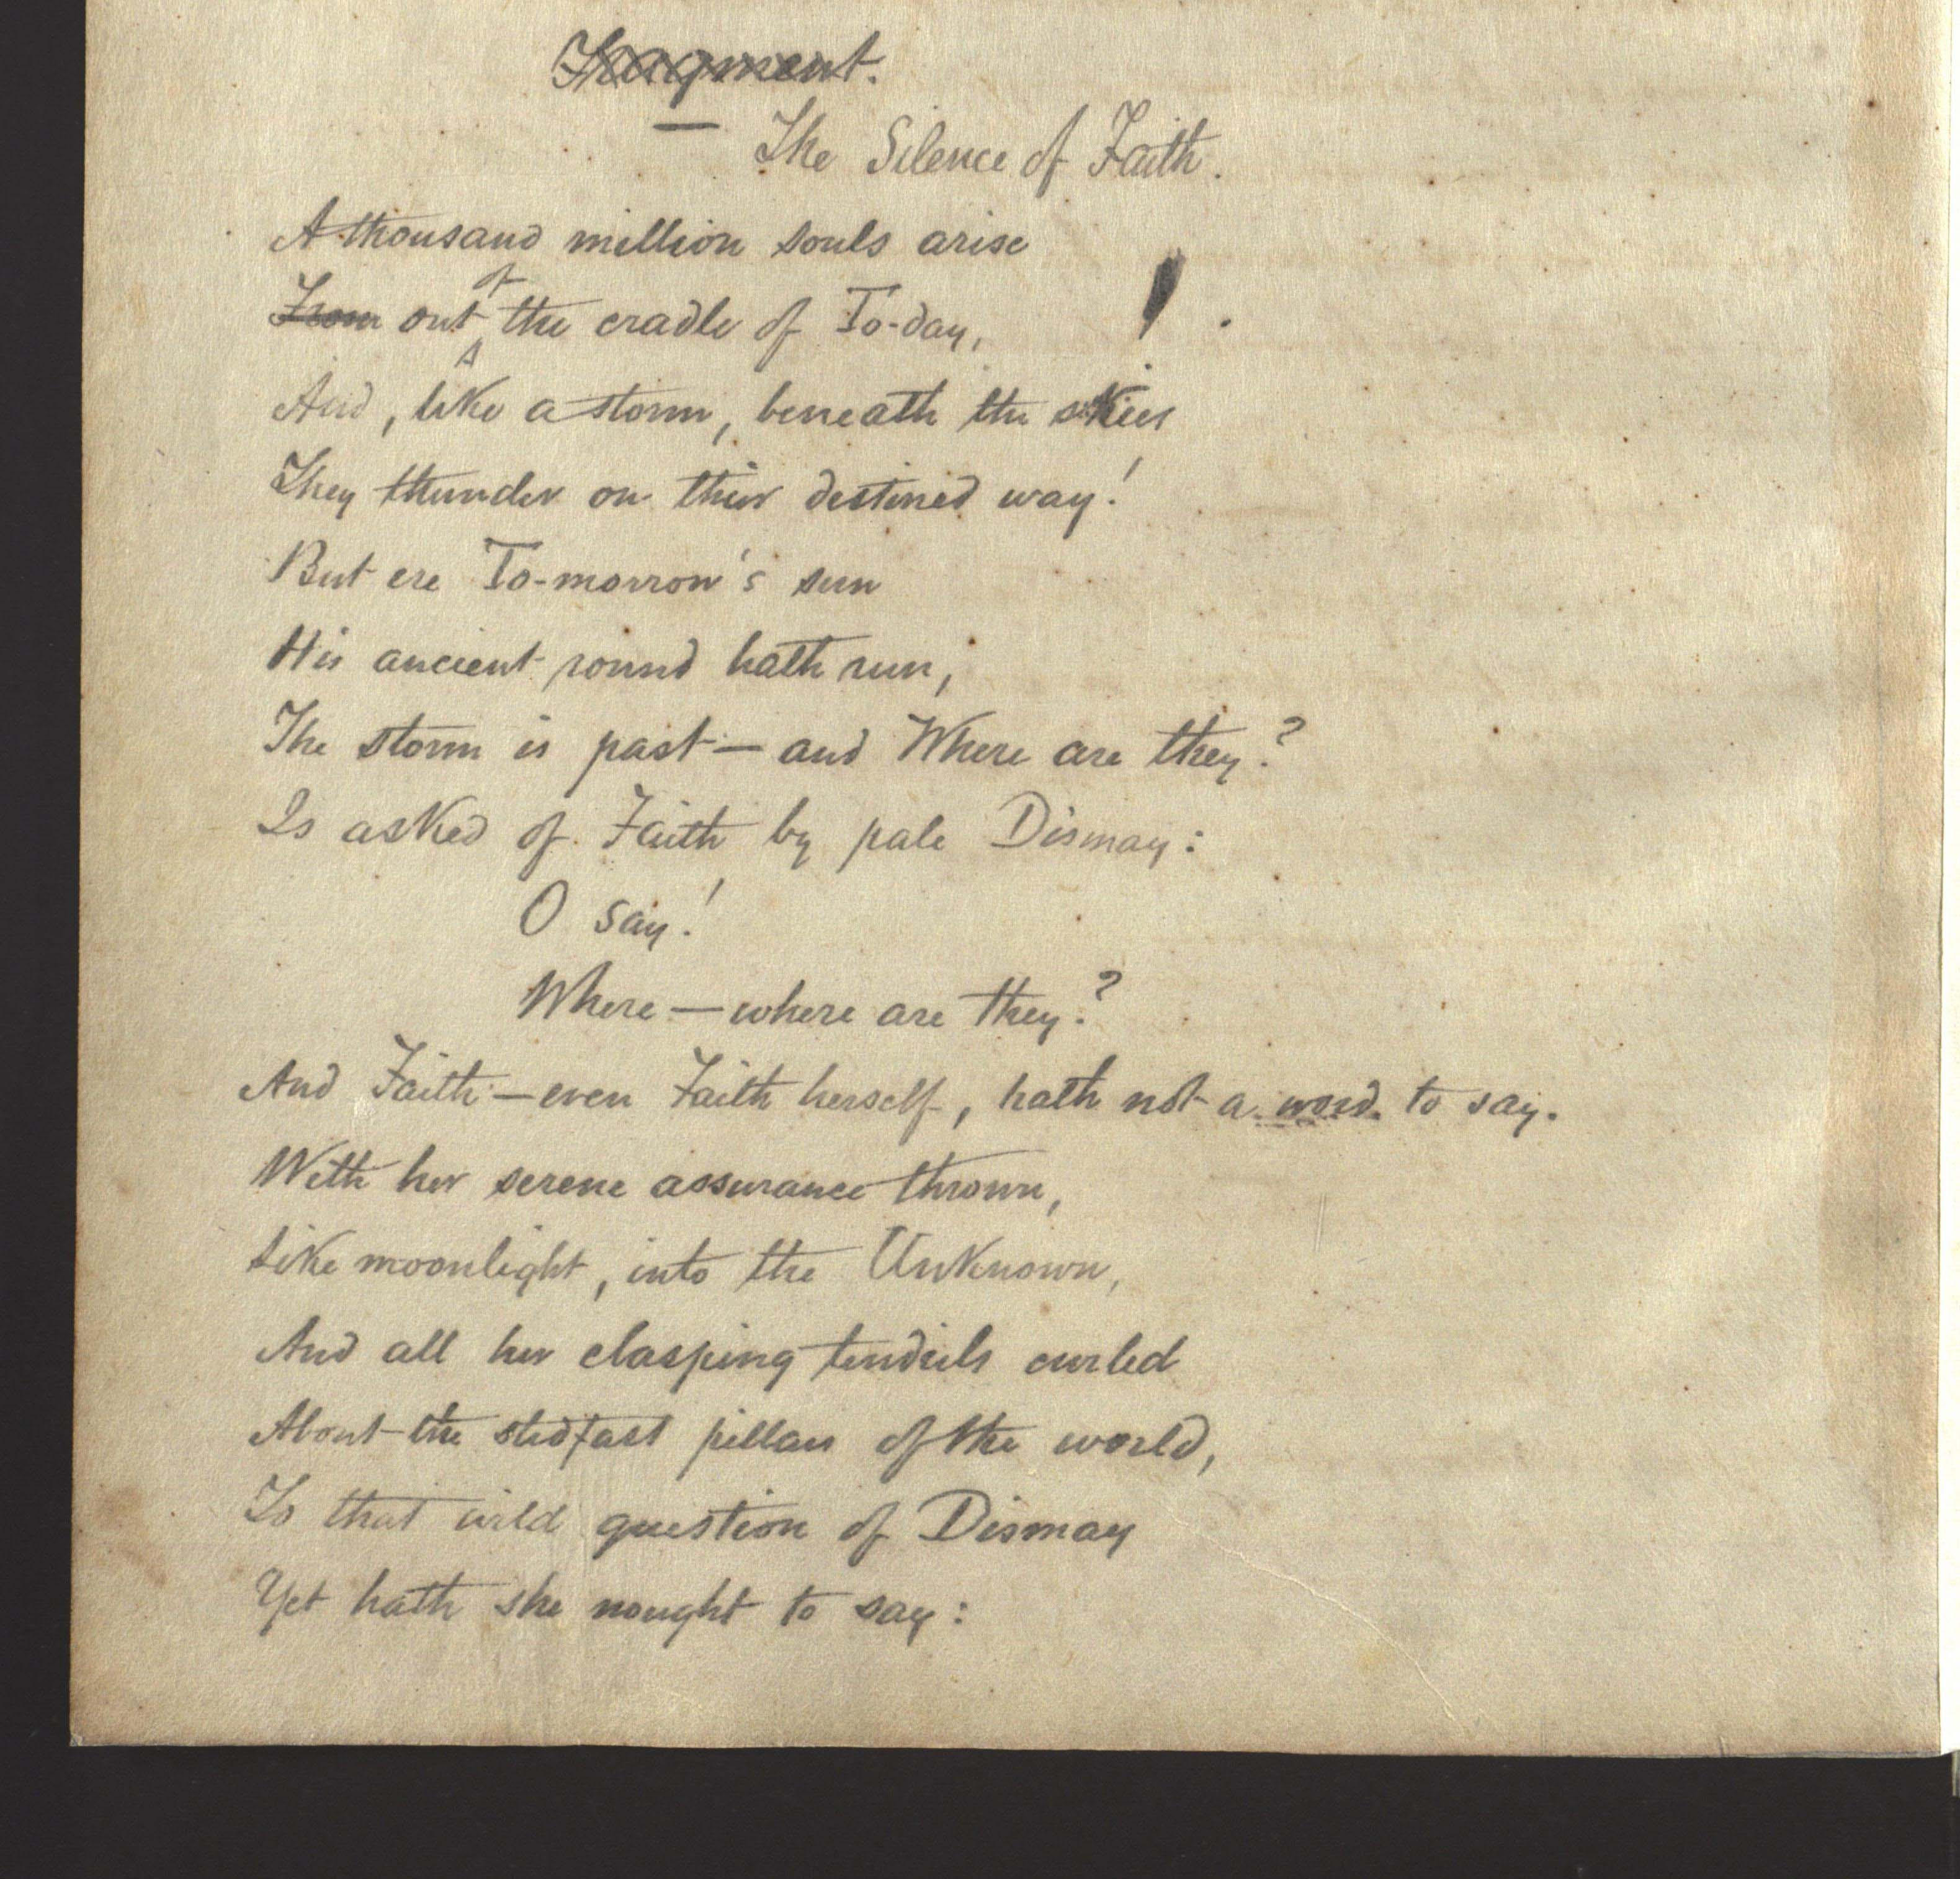 Fragment.
— The Silence of Faith.
A thousand million souls arise
From out of the cradle of To-day,
And, like a storm, beneath the skies
They thunder on their destined way!
But ere To-morrow's sun
His ancient round hath run,
The storm is past — and Where are they?
Is asked of Faith by pale Dismay:
O say!
Where — where are they?
And Faith — even Faith herself, hath not a word to say.
With her serene assurance thrown,
Like moonlight, into the Unknown,
And all her clasping tendrils curled
About the stedfast pillars of the world,
To that wild question of Dismay
Yet hath she nought to say: